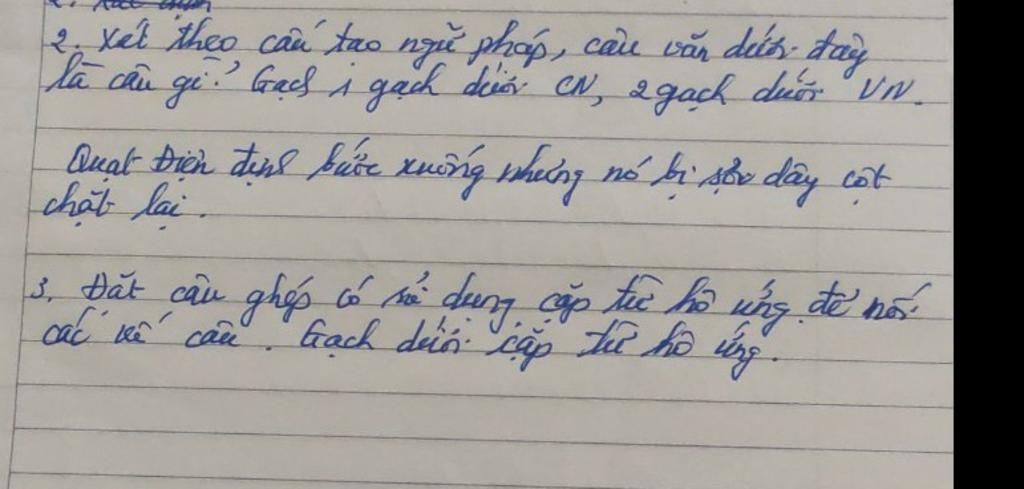 2. Xét theo cấu tạo ngữ pháp, câu văn dưới đây
là câu gì? Gạch 1 gạch dưới CN, 2 gạch dưới VN.
Quạt Điện định bước xuống nhưng nó bị sợi dây cột
chặt lại.
3. Đặt câu ghép có sử dụng cặp từ hô ứng để nối
các vế câu. Gạch dưới cặp từ hô ứng.